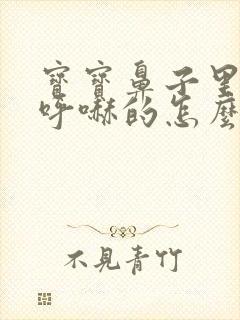 寶寶鼻子里
呼嚇的怎麼
不見青竹